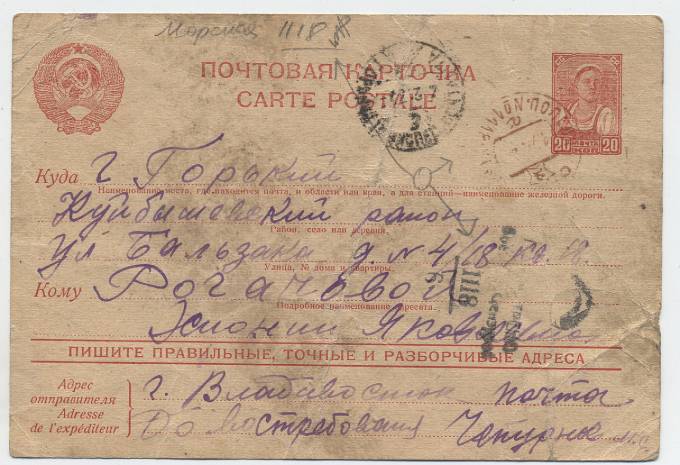 Морская 1118
ПОЧТОВАЯ КАРТОЧКА
CARTE POSTALE
20 ПОЧТА 20
КОП
Куда г. Горький
Наименование места, где находится почта, и области или края, а для станций—наименование железной дороги.
Куйбышевский район
Район, село или деревня.
ул Бальзака д. N 4/18 кв.
Улица, № дома и квартиры.
Кому Рогачовой
Подробное наименование адресата.
Яковлевне
ПИШИТЕ ПРАВИЛЬНЫЕ, ТОЧНЫЕ И РАЗБОРЧИВЫЕ АДРЕСА
Адрес отправителя г. Владивосток почта
Adresse de l'expéditeur До востребования Чепурные
1118